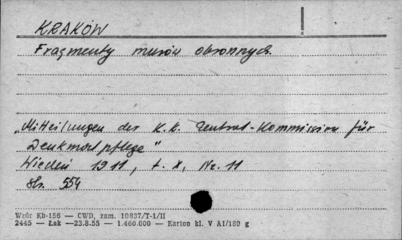 KRAKÓW
Fragmenty murów obronnych
„Mitteilungen der K.K. Zentral-Kommission für
Denkmalpflege"
Wiedeń 1911, t. X, Nr. 11
Str. 554
Wzór Kb-156 — CWD, zam. 10837/T-1/II
2445 — Łąk —23.8.55 — 1.460.000 — Karton kl. V A1/180 g